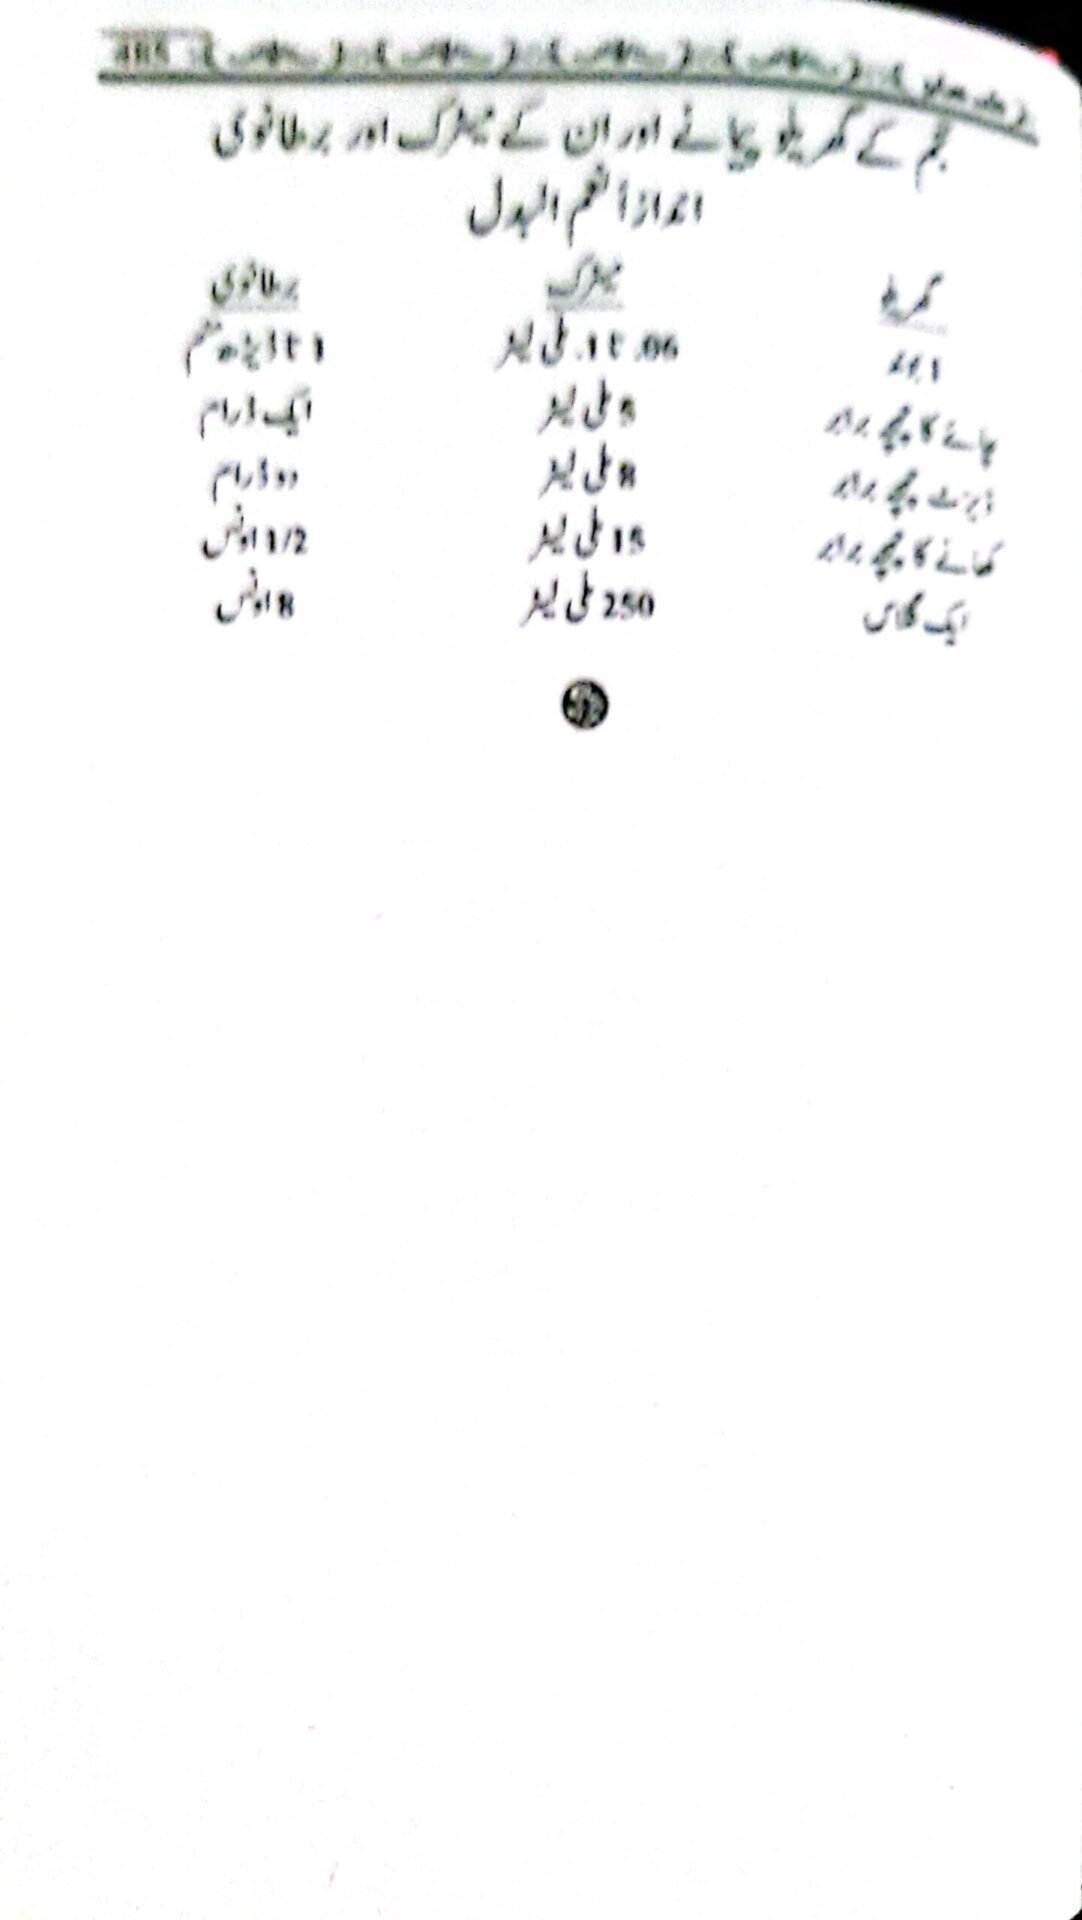 حجم کے گھریلو پیمانے اور ان کے میٹرک اور برطانوی
اندازاً نعم البدل
گھریلو میٹرک برطانوی
1 بوند 06. تا 1. ملی لیٹر 1 تا ڈیڑھ منم
چائے کا چمچہ برابر 5 ملی لیٹر ایک ڈرام
ڈیزرٹ چمچہ برابر 8 ملی لیٹر دو ڈرام
کھانے کا چمچہ برابر 15 ملی لیٹر 1/2 اونس
ایک گلاس 250 ملی لیٹر 8 اونس